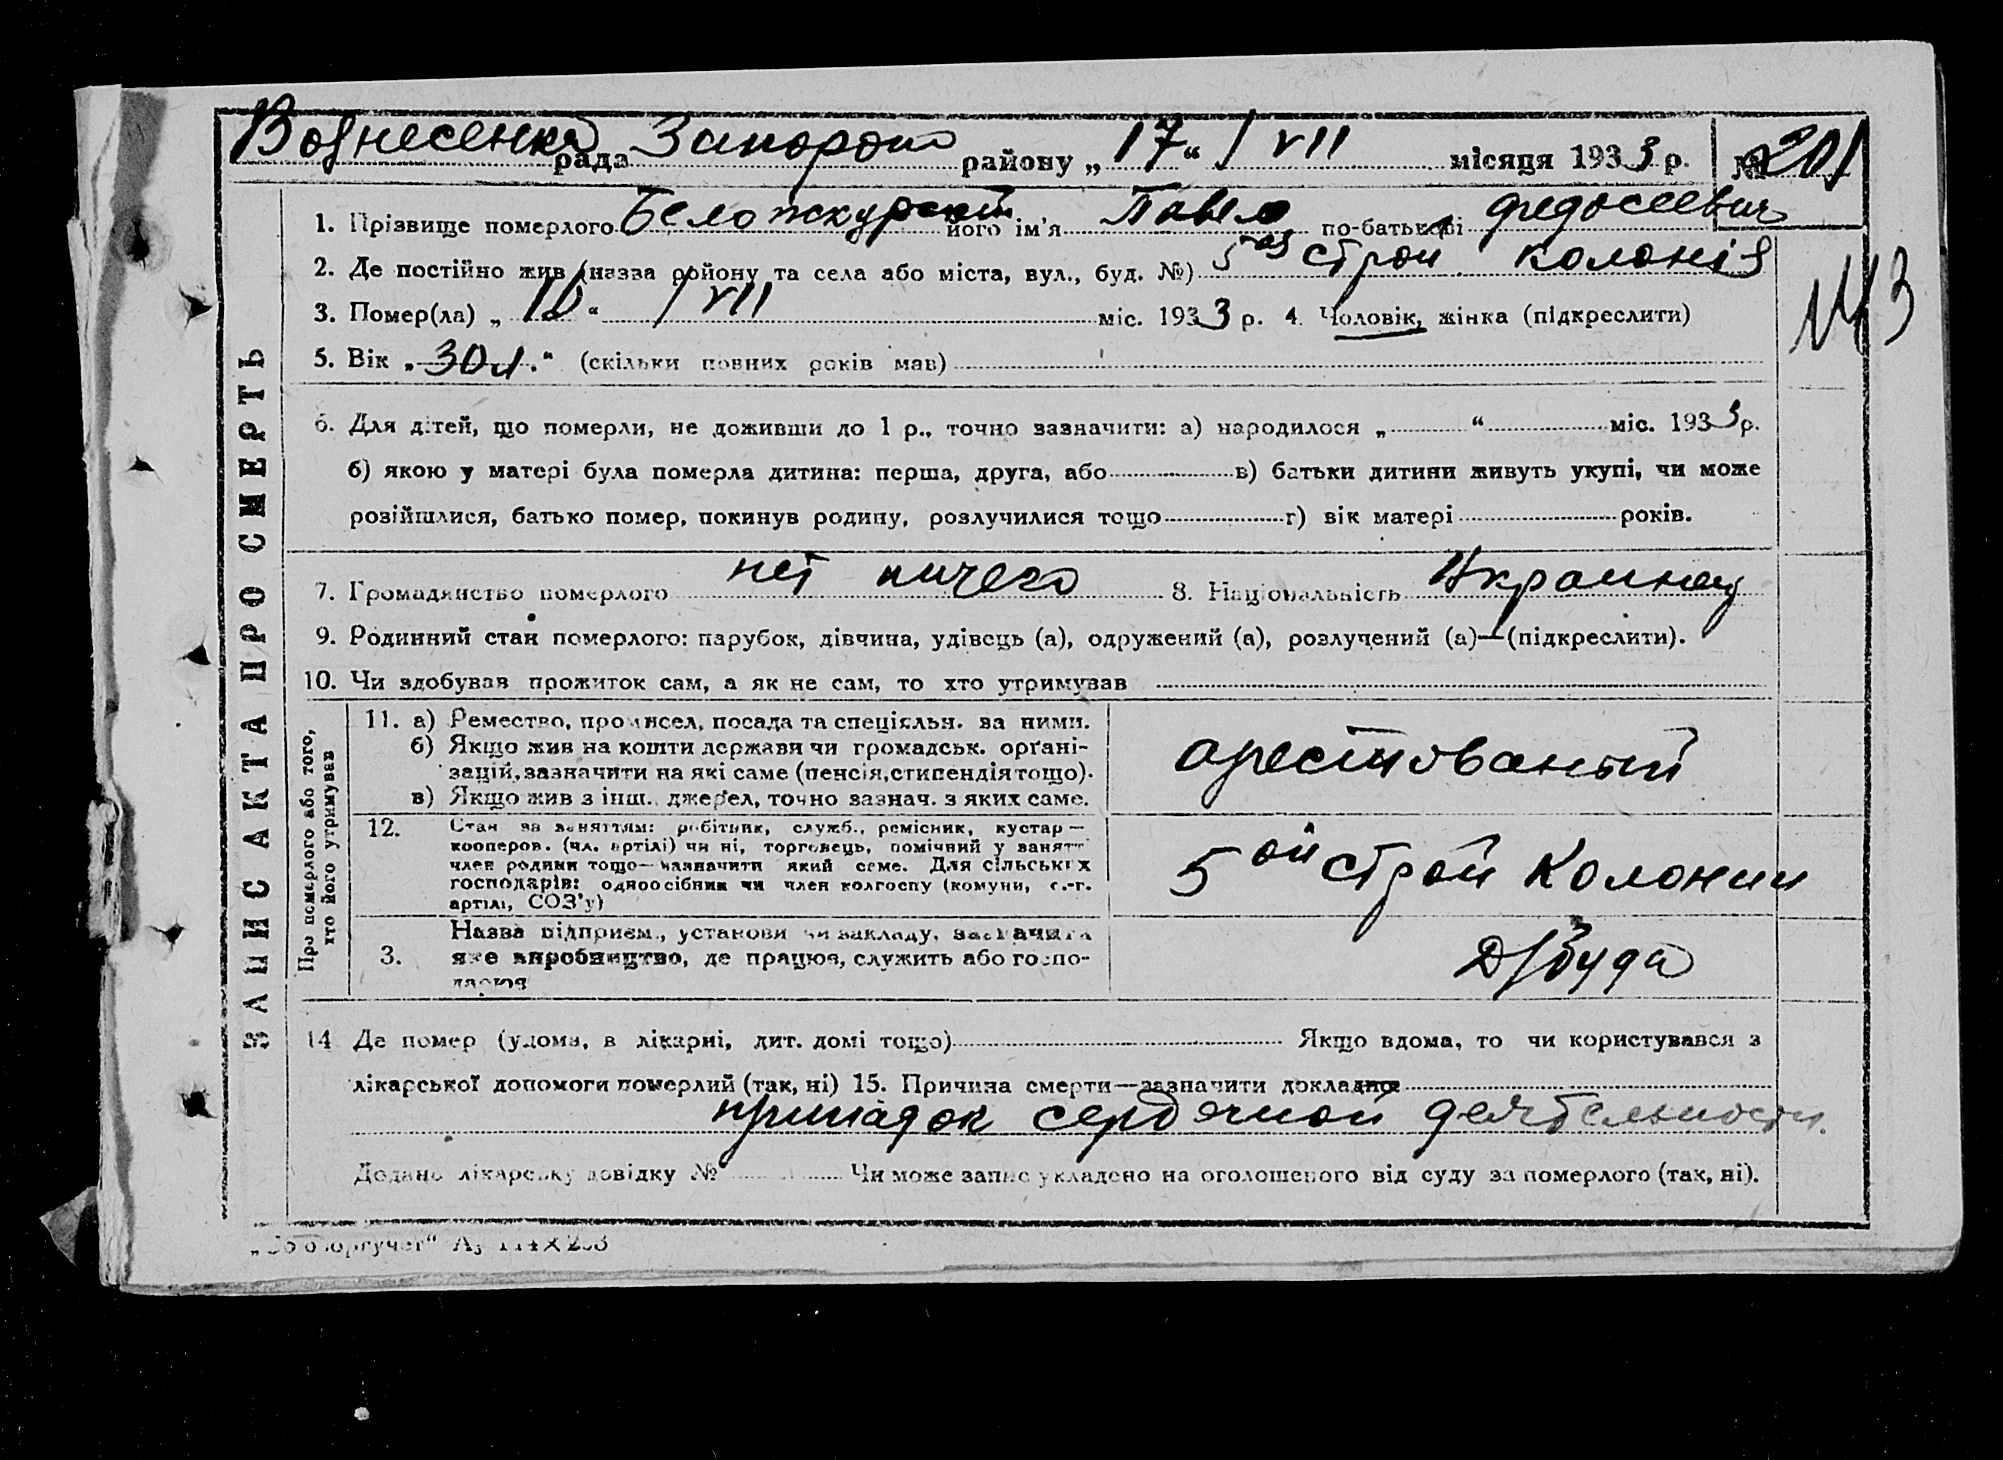 Вознесенка рада Запорож району „ 17 “ / VII місяця 1933 р. № 201
1. Прізвище померлого його ім'я Павел по-батькові Федосеевич
2. Де постійно жив (назва району та села або міста, вул., буд. №) 5ая Строй колонія
3. Помер(ла) „ “ / VII міс. 1933 р. 4. Чоловік, жінка (підкреслити)
5. Вік „ 30 л. “ (скільки повних років мав)
6. Для дітей, що померли, не доживши до 1 р., точно зазначити: а) народилося „ “ міс. 1933 р.
б) якою у матері була померла дитина: перша, друга, або в) батьки дитини живуть укупі, чи може
розійшлися, батько помер, покинув родину, розлучилися тощо г) вік матері років.
7. Громадянство померлого нет ничего 8. Національність Украинец
9. Родинний стан померлого: парубок, дівчина, удівець (а), одружений (а), розлучений (а)—(підкреслити).
10. Чи здобував прожиток сам, а як не сам, то хто утримував
ЗАПИС АКТА ПРО СМЕРТЬ
Про померлого або того,
хто його утримував
11. а) Ремество, промисел, посада та спеціяльн. за ними.
б) Якщо жив на кошти держави чи громадськ. орґані-
зацій, зазначити на які саме (пенсія, стипендія тощо).
в) Якщо жив з інш. джерел, точно зазнач. з яких саме.
арестованый
12. Стан за заняттям: робітник, служб., ремісник, кустар—
кооперов. (чл. артілі) чи ні, торговець, помічний у занятті
член родини тощо—зазначити який саме. Для сільських
господарів: одноосібник чи член колгоспу (комуни, с.-г.
артілі, СОЗ'у)
5ой Строй Колонии
3. Назва підприєм., установи чи закладу, зазначити
яке виробництво, де працює, служить або госпо-
дарює
14 Де помер (удома, в лікарні, дит. домі тощо) Якщо вдома, то чи користувався з
лікарської допомоги померлий (так, ні) 15. Причина смерти—зазначити докладно
припадок сердечной деятельности.
Додано лікарську довідку № Чи може запис укладено на оголошеного від суду за померлого (так, ні).